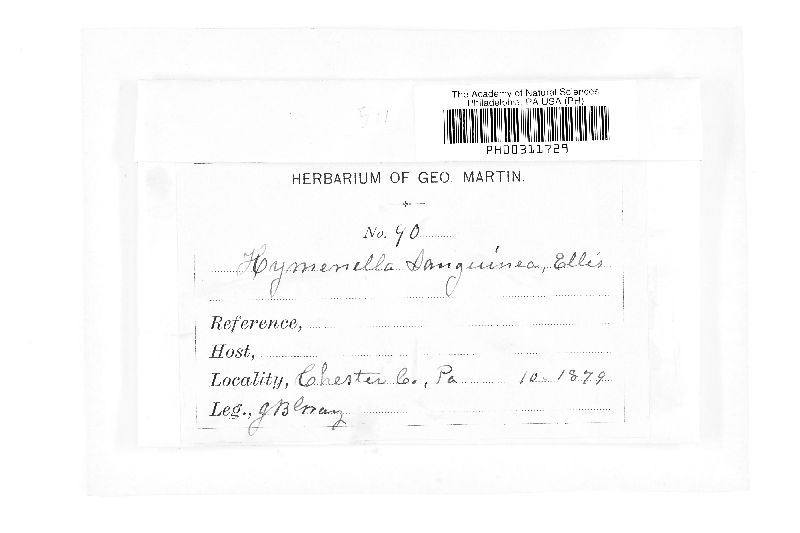 The Academy of Natural Sciences
Philadelphia, PA USA (PH)
PH00311729
HERBARIUM OF GEO. MARTIN.
No. 90
Hymenella Sanguinea, Ellis
Reference,
Host,
Locality, Chester Co., Pa 10 - 1879
Leg.,